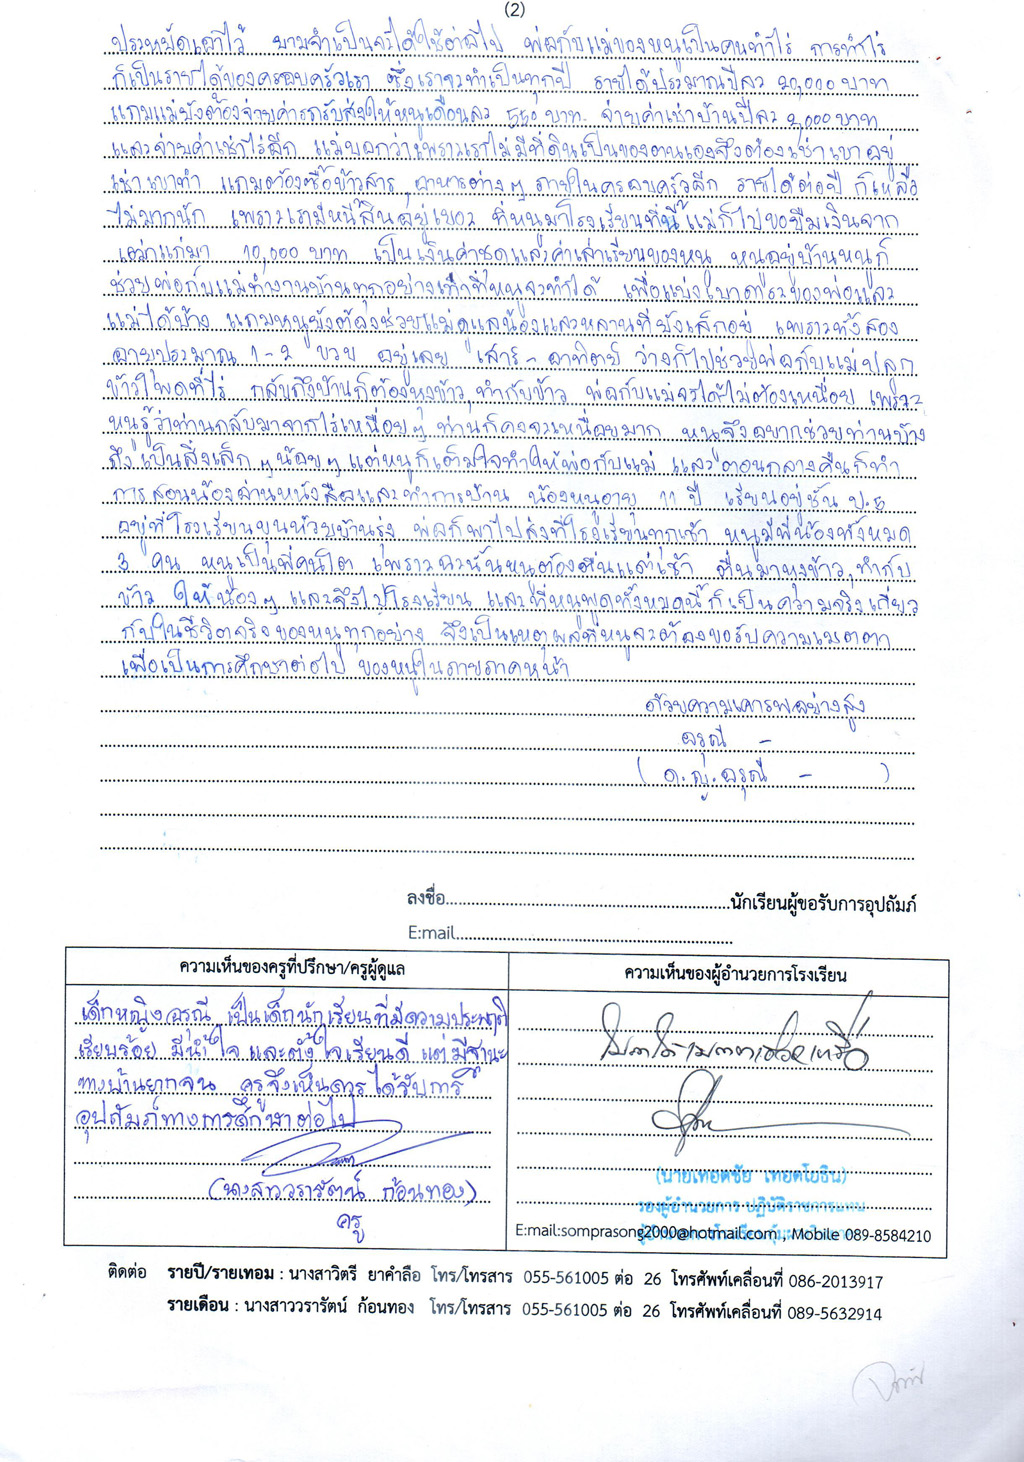 (2)
ประหยัดเอาไว้ ยามจำเป็นจะได้ใช้ต่อไป พ่อกับแม่ของหนูเป็นคนทำไร่ การทำไร่
ก็เป็นรายได้ของครอบครัวเรา ซึ่งเราจะทำเป็นทุกปี รายได้ประมาณปีละ 20,000 บาท
แถมแม่ยังต้องจ่ายค่ารถรับส่งให้หนูเดือนละ 550 บาท จ่ายค่าเช่าบ้านปีละ 2,000 บาท
และจ่ายค่าเช่าไร่อีก แม่บอกว่าเพราะเราไม่มีที่ดินเป็นของตนเองจึงต้องเช่าเขาอยู่
เช่าเขาทำ แถมต้องซื้อข้าวสาร อาหารต่างๆ ภายในครอบครัวอีก รายได้ต่อปี ก็เหลือ
ไม่มากนัก เพราะเรามีหนี้สินอยู่เยอะ ที่หนูมาโรงเรียนที่นี้ แม่ก็ไปขอยืมเงินจาก
มา 10,000 บาท เป็นเงินค่าชุดและค่าเล่าเรียนของหนู หนูอยู่บ้านหนูก็
ช่วยพ่อกับแม่ทำงานบ้านทุกอย่างเท่าที่หนูจะทำได้ เพื่อแบ่งเบาภาระของพ่อและ
แม่ได้บ้าง แถมหนูยังต้องช่วยแม่ดูแลน้องและหลานที่ยังเล็กอยู่ เพราะทั้งสอง
อายุประมาณ 1-2 ขวบ อยู่เลย เสาร์ - อาทิตย์ ว่างก็ไปช่วยพ่อกับแม่ปลูก
ข้าวโพดที่ไร่ กลับถึงบ้านก็ต้องหุงข้าว, ทำกับข้าว พ่อกับแม่จะได้ไม่ต้องเหนื่อย เพราะ
หนูรู้ว่าท่านกลับมาจากไร่เหนื่อยๆ ท่านก็คงจะเหนื่อยมาก หนูจึงอยากช่วยท่านบ้าง
ถึงเป็นสิ่งเล็กๆ น้อยๆ แต่หนูก็เต็มใจทำให้พ่อกับแม่ และตอนกลางคืนก็ทำ
การสอนน้องอ่านหนังสือและทำการบ้าน น้องหนูอายุ 11 ปี เรียนอยู่ชั้น ป.5
อยู่ที่โรงเรียนขุนห้วยบ้านรุ่ง พ่อก็พาไปส่งที่โรงเรียนทุกเช้า หนูมีพี่น้องทั้งหมด
3 คน หนูเป็นพี่คนโต เพราะฉะนั้นหนูต้องตื่นแต่เช้า ตื่นมาหุงข้าว, ทำกับ
ข้าว ให้น้องๆ และจึงไปโรงเรียน และที่หนูพูดทั้งหมดนี้ก็เป็นความจริงเกี่ยว
กับในชีวิตจริงของหนูทุกอย่าง จึงเป็นเหตุผลที่หนูจะต้องขอรับความเมตตา
เพื่อเป็นการศึกษาต่อไป ของหนูในภายภาคหน้า
ด้วยความเคารพอย่างสูง
อรุณี -
( ด.ญ. อรุณี - )
ลงชื่อ....................นักเรียนผู้ขอรับการอุปถัมภ์
E:mail....................
ความเห็นของครูที่ปรึกษา/ครูผู้ดูแล
เด็กหญิงอรุณี เป็นเด็กนักเรียนที่มีความประพฤติ
เรียบร้อย มีน้ำใจ และตั้งใจเรียนดี แต่มีฐานะ
ทางบ้านยากจน ครูจึงเห็นควรได้รับการ
อุปถัมภ์ทางการศึกษาต่อไป
(นางสาววรารัตน์ ก้อนทอง)
ครู
ความเห็นของผู้อำนวยการโรงเรียน
โปรดได้เมตตาช่วยเหลือ
(นายเทอดชัย เทอดโยธิน)
รองผู้อำนวยการ ปฏิบัติราชการแทน
E:mail:somprasong2000@hotmail.com , Mobile 089-8584210
ติดต่อ รายปี/รายเทอม : นางสาวิตรี ยาคำลือ โทร/โทรสาร 055-561005 ต่อ 26 โทรศัพท์เคลื่อนที่ 086-2013917
รายเดือน : นางสาววรารัตน์ ก้อนทอง โทร/โทรสาร 055-561005 ต่อ 26 โทรศัพท์เคลื่อนที่ 089-5632914